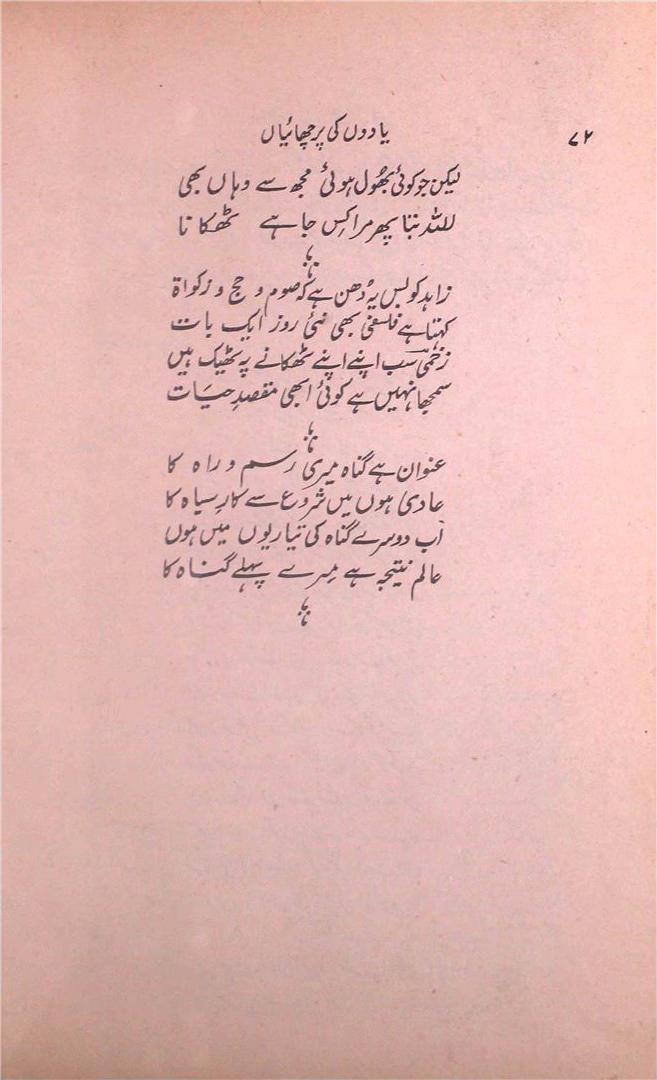 ۷۲
یادوں کی پرچھائیاں
لیکن جو کوئی بھُول ہوئی مجھ سے وہاں بھی
للہ بتا پھر مرا کِس جا ہے ٹھکانا
زاہد کو بس یہ دُھن ہے کہ صوم و حج و زکواۃ
کہتا ہے فلسفی بھی نئی روز ایک بات
زخمیؔ سب اپنے اپنے ٹھکانے پہ ٹھیک ہیں
سمجھا نہیں ہے کوئی ابھی مقصدِ حیَات
عنوان ہے گناہ میری رسم و راہ کا
عادی ہوں میں شروع سے کارِ سیاہ کا
اَب دوسرے گناہ کی تیاریوں میں ہوں
عالم نتیجہ ہے مِرے پہلے گناہ کا